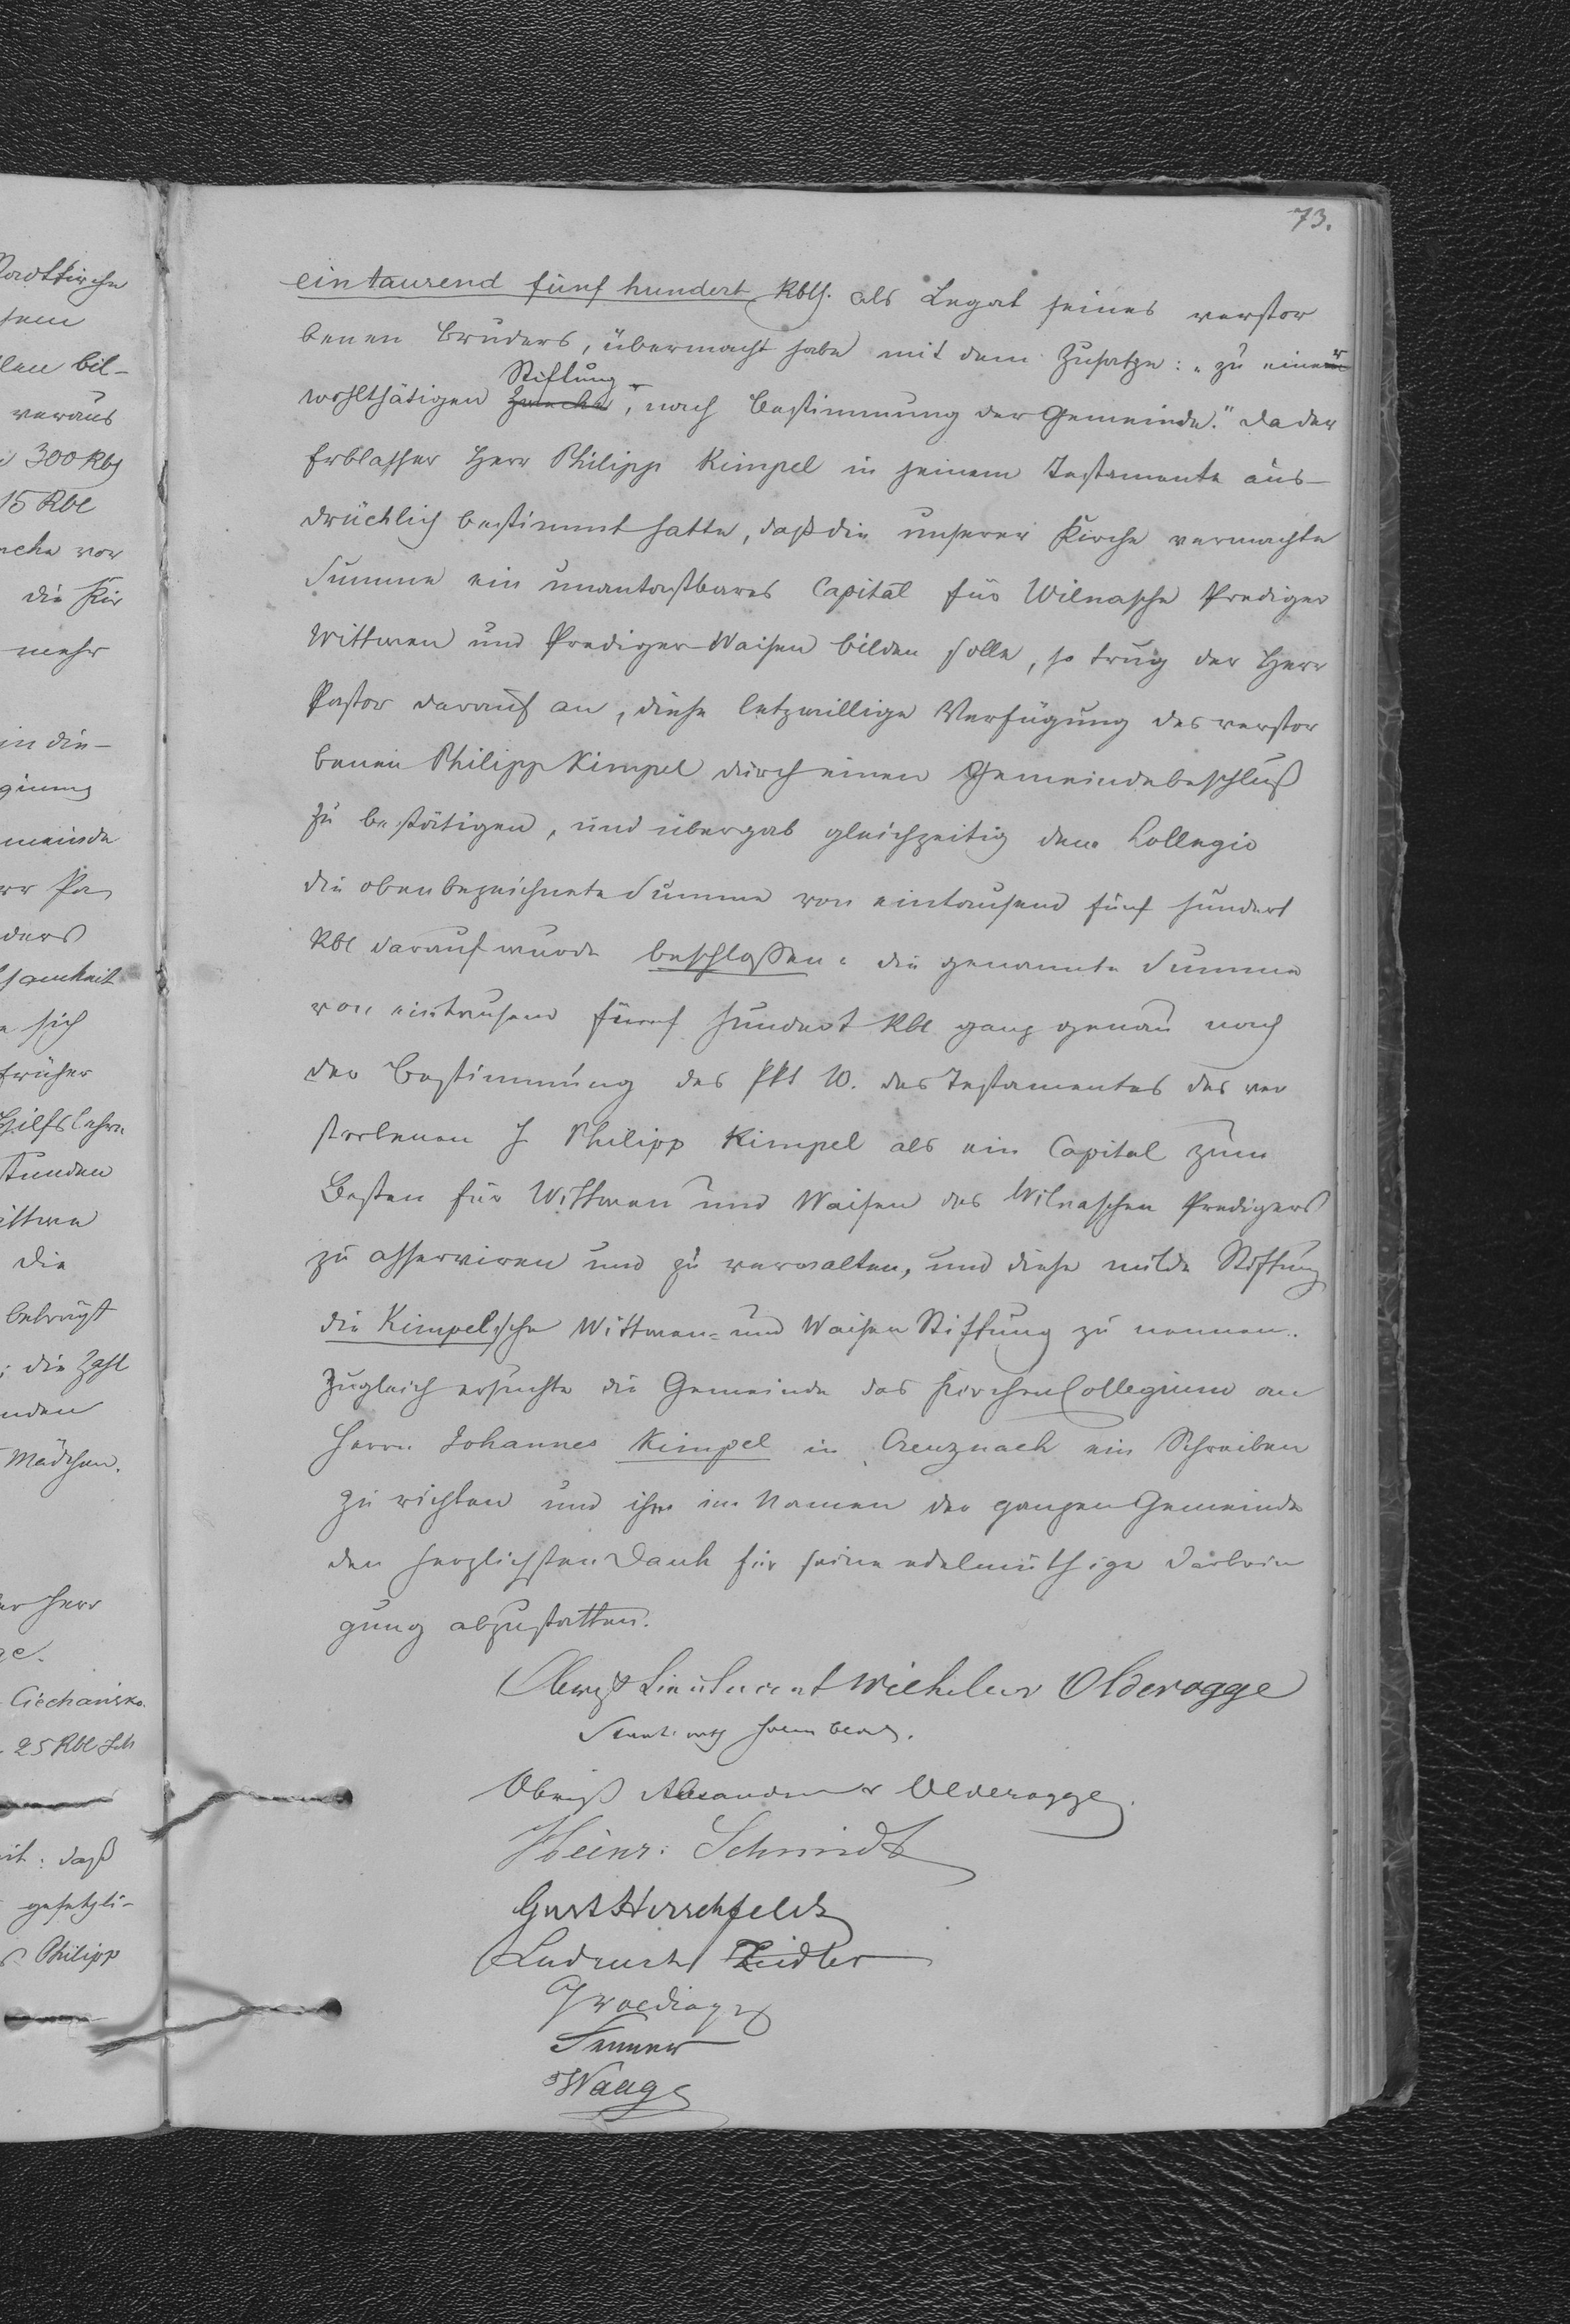 73.
eintausend fünf hundert Rbls. als Legat seines verstor
benen Bruders, übermacht habe mit dem Zusatze: „zu einer
Stiftung
wohlthätigen Zwecke, nach Bestimmung der Gemeinde." Da der
Erblasser Herr Philipp Kimpel in seinem Testamente aus-
drücklich bestimmt hatte, daß die unserer Kirche vermachte
Summe ein unantastbares Capital für Wilnasche Prediger
Wittwen und Prediger-Waisen bilden solle, so trug der Herr
Pastor darauf an, diese letzwillige Verfügung des verstor
benen Philipp Kimpel durch einen Gemeindebeschluß
zu bestätigen, und übergab gleichzeitig dem Collegio
die obenbezeichnete Summe von eintausend fünf hundert
Rbl darauf wurde beschloßen: die genannte Summe
von eintausend fünf hundert Rbl ganz genau nach
der Bestimmung des Pkt 10. des Testamentes des ver
storbenen H Philipp Kimpel als ein Capital zum
Besten für Wittwen und Waisen des Wilnaschen Predigers
zu asserviren und zu verwalten, und diese milde Stiftung
die Kimpelsche Wittwen- und Waisen Stiftung zu nennen.
Zugleich ersuchte die Gemeinde das Kirchen Collegium an
Herrn Johannes Kimpel in Creuznach ein Schreiben
zu richten und ihm im Namen der ganzen Gemeinde
den herzlichsten Dank für seine edelmüthige Darbrin
gung abzustatten.
Obrist Lieutenant Wilhelm Olderogge
Obrist Alexander Olderogge.
Heinr: Schmidt
Gust Hirschfeldt
Ludwich Zeidler
Waage
Stadtkirche
len bil-
voraus
300 Rbl
15 Rbl
die Kir
mehr
in die-
meinde
sich
früher
Hilfslehre
Stunden
die
beträgt
; die Zahl
Mädchen.
Herr
Ciechańsko.
25 Rbl
daß
gesetzli-
Philipp